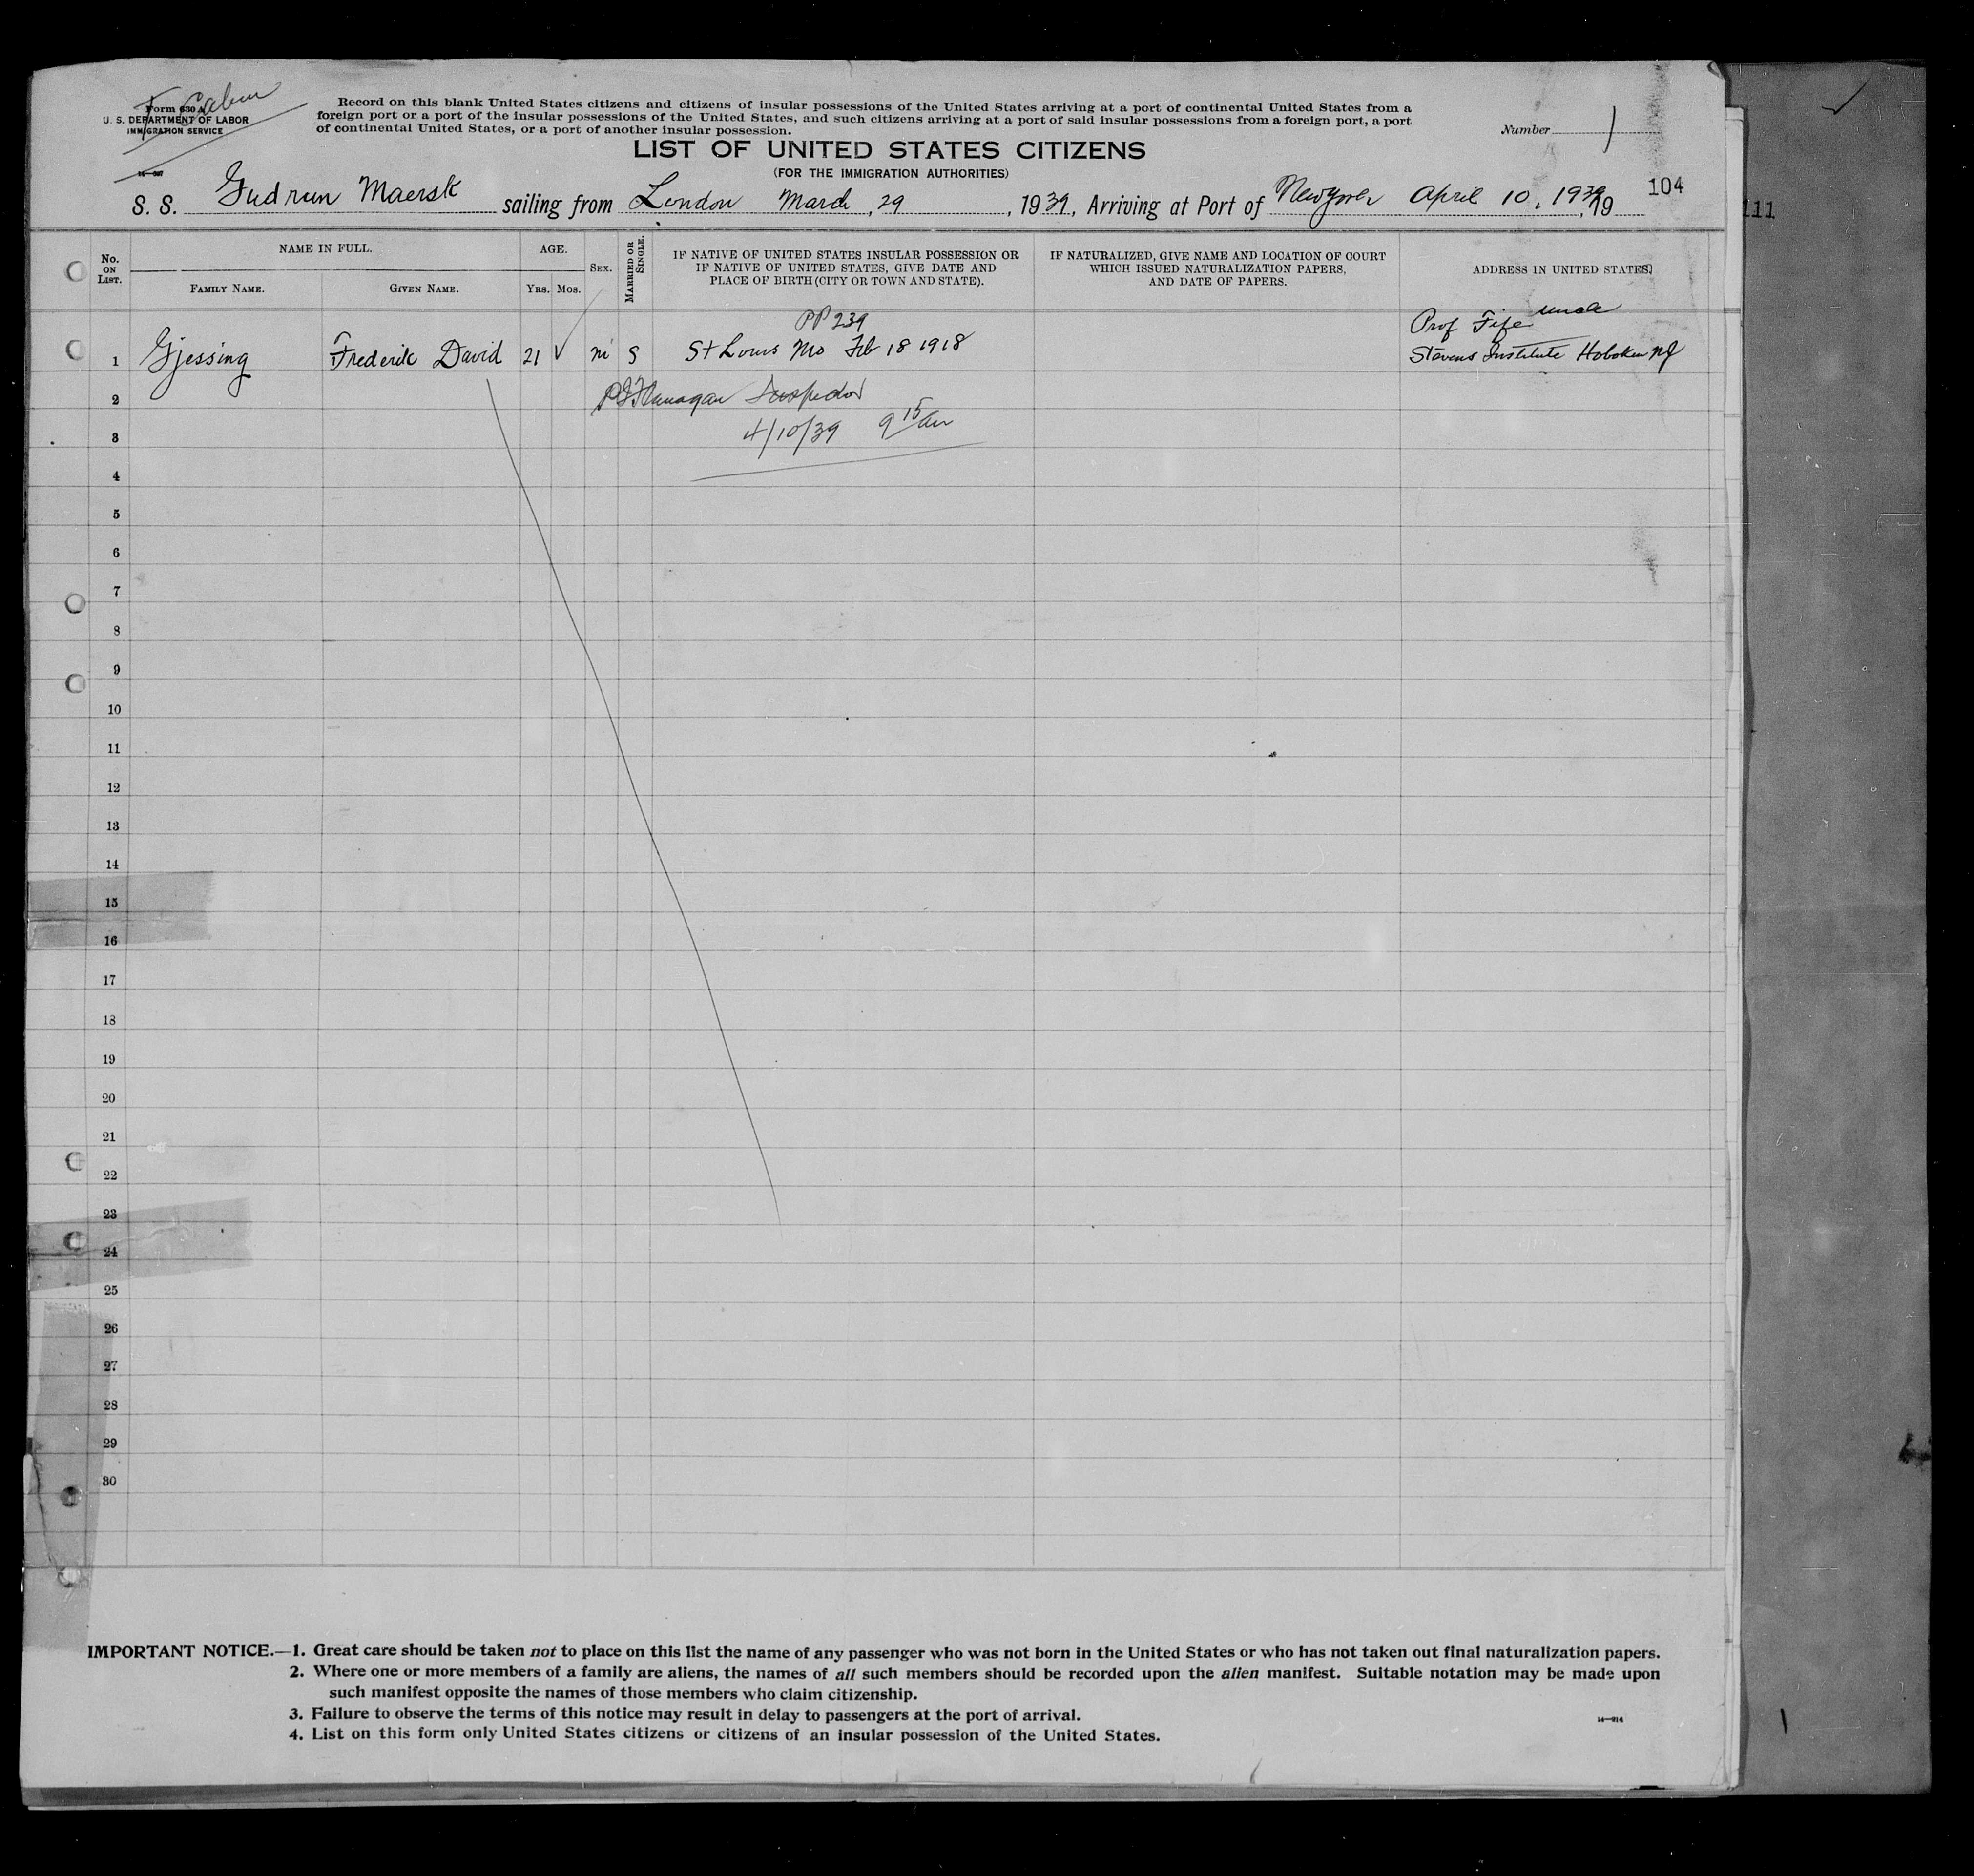 Form 630 A
U. S. DEPARTMENT OF LABOR
IMMIGRATION SERVICE
Record on this blank United States citizens and citizens of insular possessions of the United States arriving at a port of continental United States from a
foreign port or a port of the insular possessions of the United States, and such citizens arriving at a port of said insular possessions from a foreign port, a port
of continental United States, or a port of another insular possession.
Number 1
LIST OF UNITED STATES CITIZENS
(FOR THE IMMIGRATION AUTHORITIES)
104
S. S. Gudrun Maersk sailing from London March, 29, 1939, Arriving at Port of New York April 10, 1939, 19
111
No. ON LIST.
NAME IN FULL.
FAMILY NAME.
GIVEN NAME.
AGE.
YRS. MOS.
SEX.
MARRIED OR SINGLE.
IF NATIVE OF UNITED STATES INSULAR POSSESSION OR
IF NATIVE OF UNITED STATES, GIVE DATE AND
PLACE OF BIRTH (CITY OR TOWN AND STATE).
IF NATURALIZED, GIVE NAME AND LOCATION OF COURT
WHICH ISSUED NATURALIZATION PAPERS,
AND DATE OF PAPERS.
ADDRESS IN UNITED STATES.
PP 239
Prof Fife uncle
1 Gjessing Frederik David 21 m S St Louis Mo Feb 18 1918 Stevens Institute Hoboken NJ
2 Flanagan Inspector
3 4/10/39 9 15 am
4
5
6
7
8
9
10
11
12
13
14
15
16
17
18
19
20
21
22
23
24
25
26
27
28
29
30
IMPORTANT NOTICE.—1. Great care should be taken not to place on this list the name of any passenger who was not born in the United States or who has not taken out final naturalization papers.
2. Where one or more members of a family are aliens, the names of all such members should be recorded upon the alien manifest. Suitable notation may be made upon
such manifest opposite the names of those members who claim citizenship.
3. Failure to observe the terms of this notice may result in delay to passengers at the port of arrival.
4. List on this form only United States citizens or citizens of an insular possession of the United States.